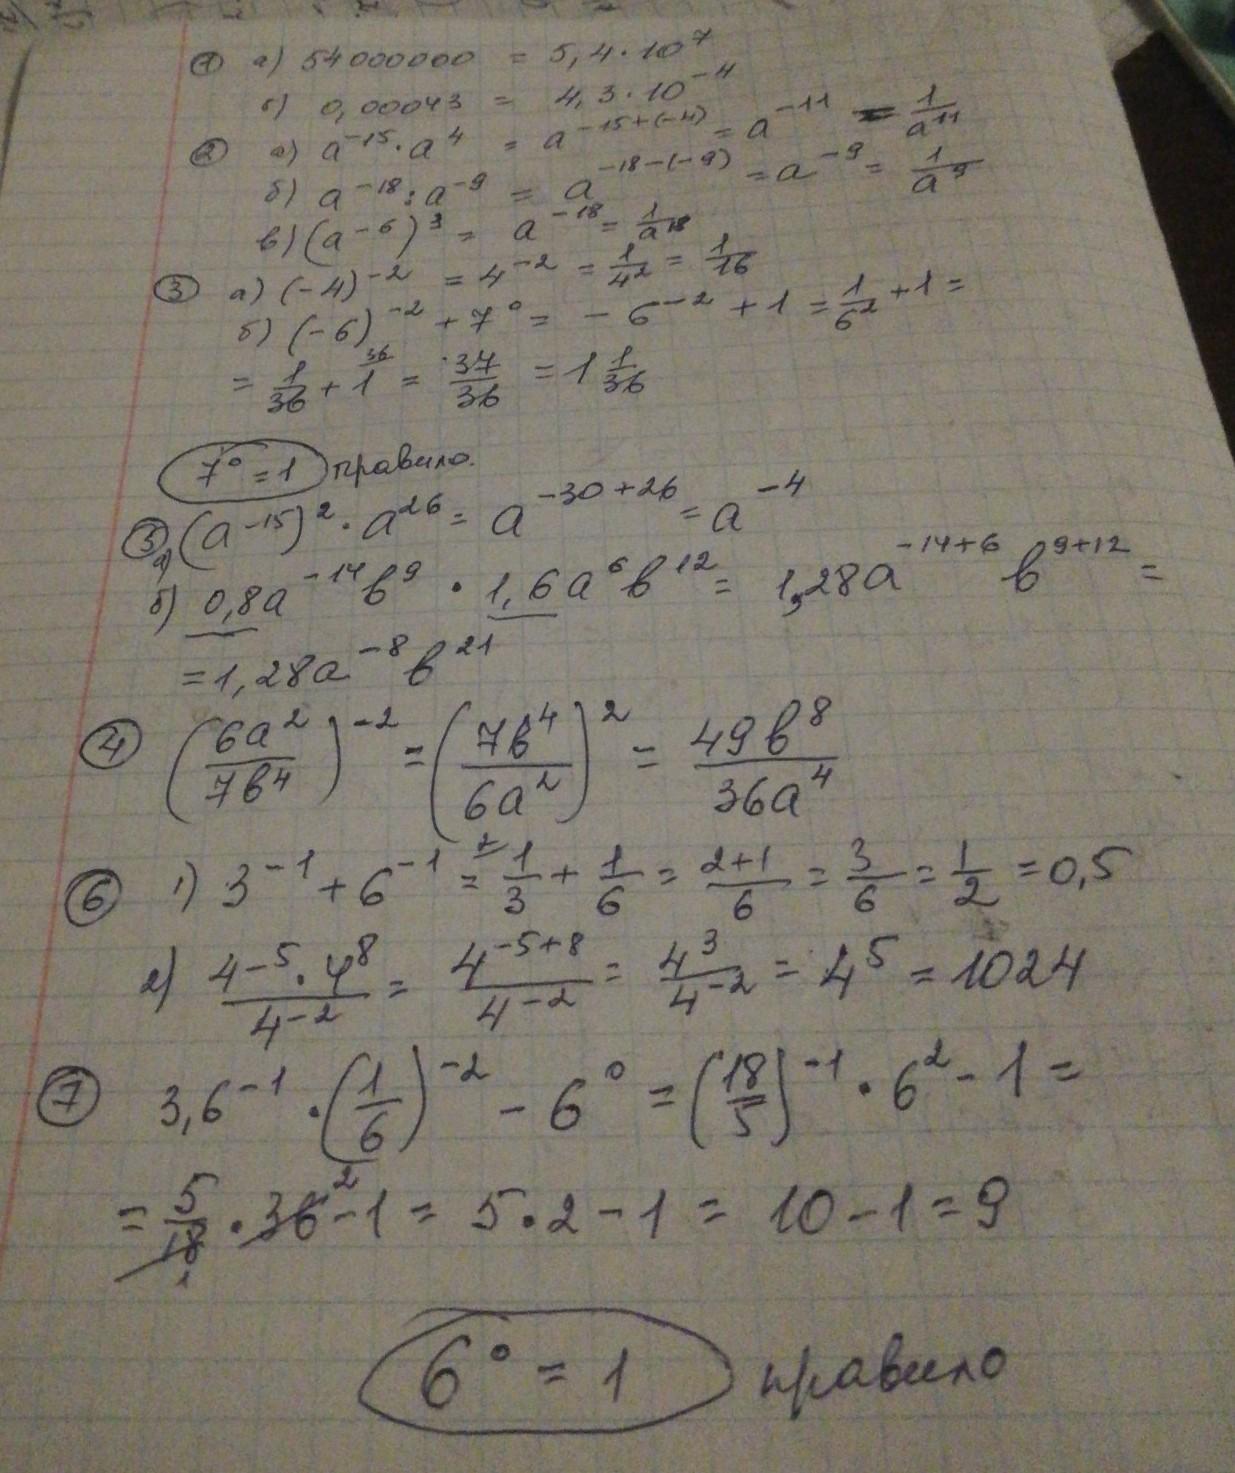 ① а) 54000000 = 5,4·10⁷
б) 0,00043 = 4,3·10⁻⁴
② а) a⁻¹⁵·a⁴ = a⁻¹⁵⁺⁽⁻⁴⁾ = a⁻¹¹ = 1/a¹¹
б) a⁻¹⁸:a⁻⁹ = a⁻¹⁸⁻⁽⁻⁹⁾ = a⁻⁹ = 1/a⁹
в) (a⁻⁶)³ = a⁻¹⁸ = 1/a¹⁸
③ а) (-4)⁻² = 4⁻² = 1/4² = 1/16
б) (-6)⁻² + 7⁰ = - 6⁻² + 1 = 1/6² + 1 =
= 1/36 + 1³⁶ = 37/36 = 1 1/36
7⁰ = 1 правило.
③ а) (a⁻¹⁵)² · a²⁶ = a⁻³⁰⁺²⁶ = a⁻⁴
б) 0,8a⁻¹⁴b⁹ · 1,6a⁶b¹² = 1,28a⁻¹⁴⁺⁶ b⁹⁺¹² =
= 1,28a⁻⁸b²¹
④ (6a²/7b⁴)⁻² = (7b⁴/6a²)² = 49b⁸/36a⁴
⑥ 1) 3⁻¹ + 6⁻¹ = ²1/3 + 1/6 = (2+1)/6 = 3/6 = 1/2 = 0,5
2) 4⁻⁵·4⁸/4⁻² = 4⁻⁵⁺⁸/4⁻² = 4³/4⁻² = 4⁵ = 1024
⑦ 3,6⁻¹ · (1/6)⁻² - 6⁰ = (18/5)⁻¹ · 6² - 1 =
= 5/18 · 36² - 1 = 5·2 - 1 = 10 - 1 = 9
6⁰ = 1 правило